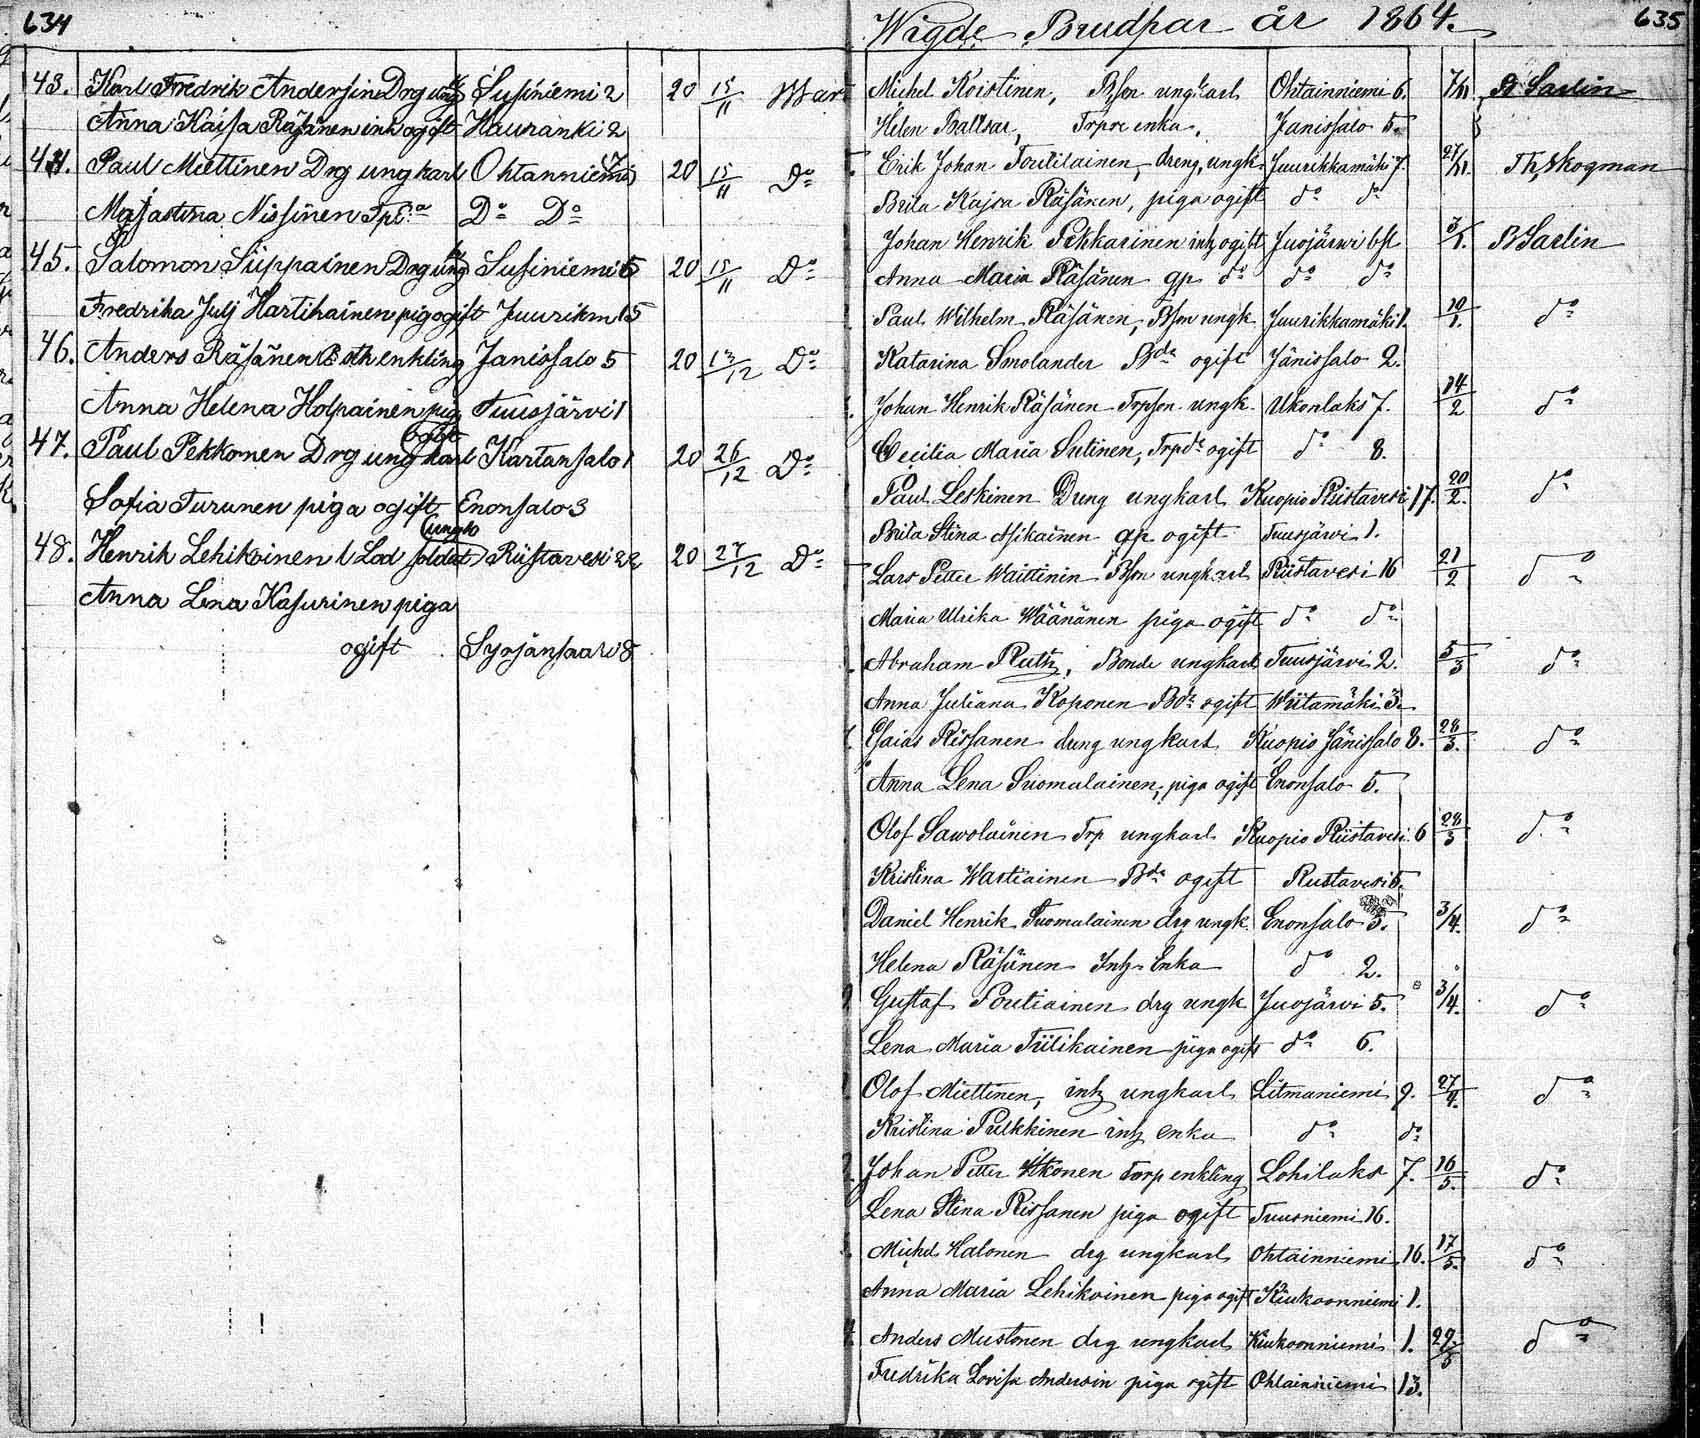 634
43. Karl Fredrik Andersin Drg ungk Susiniemi 2 20 15/11 Mart
Anna Kaisa Räsänen inh ogift Hauranki 2
44. Paul Miettinen Drg ungkarl Ohtanniemi 17 20 15/11 Do
Nissinen Do Do
45. Salomon Siippainen Drg ungk Susiniemi 5 20 15/11 Do
Fredrika Julj Hartikainen pig ogift Juurikm 15
46. Anders Räsänen enkling Janissalo 5 20 13/12 Do
Anna Helena Holpainen pig ogift Tuusjärvi 1
47. Paul Pekkonen Drg ungkarl Kartansalo 1 20 26/12 Do
Sofia Turunen piga ogift Enonsalo 3
48. Henrik Lehikoinen Lod soldat ungk Riistavesi 22 20 27/12 Do
Anna Lena Kasurinen piga
ogift Syrjänsaari 8
Wigde Brudpar år 1864. 635
Michel Koistinen, Bson ungkarl Ohtainniemi 6. 7/11 B Sarlin
Helen Baltsar, Trpre enka, Janissalo 5.
Erik Johan Toutilainen, dreng, ungk. Juurikkamäki 7. 27/11. Th, Skogman
Brita Kajsa Räsänen, piga ogift do do
Johan Henrik Pekkarinen inh ogift Juojärwi bst 3/1. B Sarlin
Anna Maria Räsänen qp do do do
Paul Wilhelm Räsänen, Bson ungk Juurikkamäki 1. 10/1. do
Katarina Smolander Bdr ogift Jänissalo 2.
Johan Henrik Räsänen Trpson ungk. Ukonlaks 7. 14/2 do
Cecilia Maria Sutinen, Trpdr ogift do 8.
Paul Leskinen Dreng ungkarl Kuopio Riistavesi 17. 20/2. do
Brita Stina Asikainen qp ogift Tuusjärvi 1.
Lars Petter Waittinin Bson ungkarl Riistavesi 16 21/2 do
Maria Ulrika Wäänänen piga ogift do do
Abraham Ruth, Bonde ungkarl Tuusjärvi 2. 5/3 do
Anna Juliana Koponen Bdr ogift Wiitamäki 3.
Esaias Rissanen dreng ungkarl Kuopio Jänissalo 8. 28/3. do
Anna Lena Suomalainen, piga ogift Enonsalo 5.
Olof Sawolainen Trp ungkarl Kuopio Riistavesi 6 28/3 do
Kristina Wartiainen Bdr ogift Rustavesi 5.
Daniel Henrik Suomalainen drg ungk. Enonsalo 5. 3/4. do
Helena Räsänen Inh Enka do 2.
Gustaf Poutiainen drg ungk Juojärvi 5. 3/4. do
Lena Maria Tiilikainen piga ogift do 6.
Olof Miettinen, inh ungkarl Litmaniemi 9. 27/4. do
Kristina Pulkkinen inh enka do do
Johan Petter Itkonen Torp enkling Lohilaks 7. 16/5. do
Lena Stina Rissanen piga ogift Tuusniemi 16.
Michel Halonen drg ungkarl Ohtainniemi 16. 17/5. do
Anna Maria Lehikoinen piga ogift Kiukoonniemi 1.
Anders Mustonen drg ungkarl Kiukoonniemi 1. 29/5 do
Fredrika Lovisa Andersin piga ogift Ohtainniemi 13.